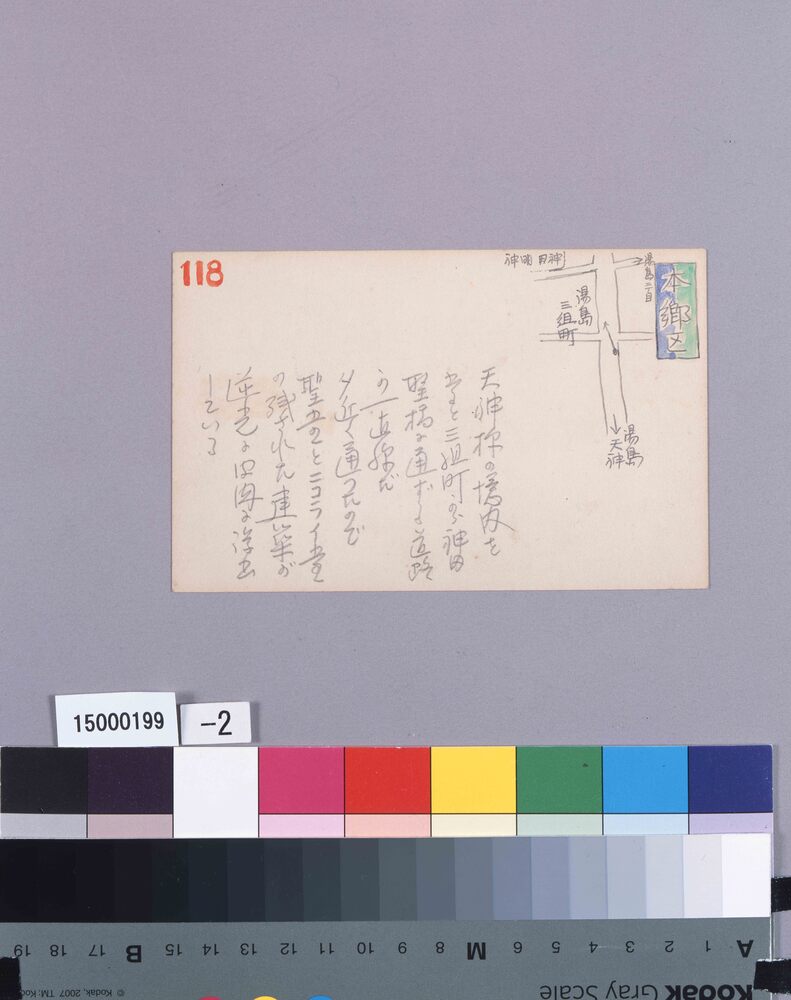 118
神田明神
湯島二丁目
本郷区
湯島
三組町
湯島
天神
天神様の境内を
出ると三組町から神田
聖橋に通ずる道路
が一直線だ
聖堂とニコライ堂
の残された建築が
逆光に
している
15000199
-2
A 1 2 3 4 5 6 M 8 9 10 11 12 13 14 15 B 17 18 19
KODAK Gray Scale
© Kodak, 2007 TM: Kodak